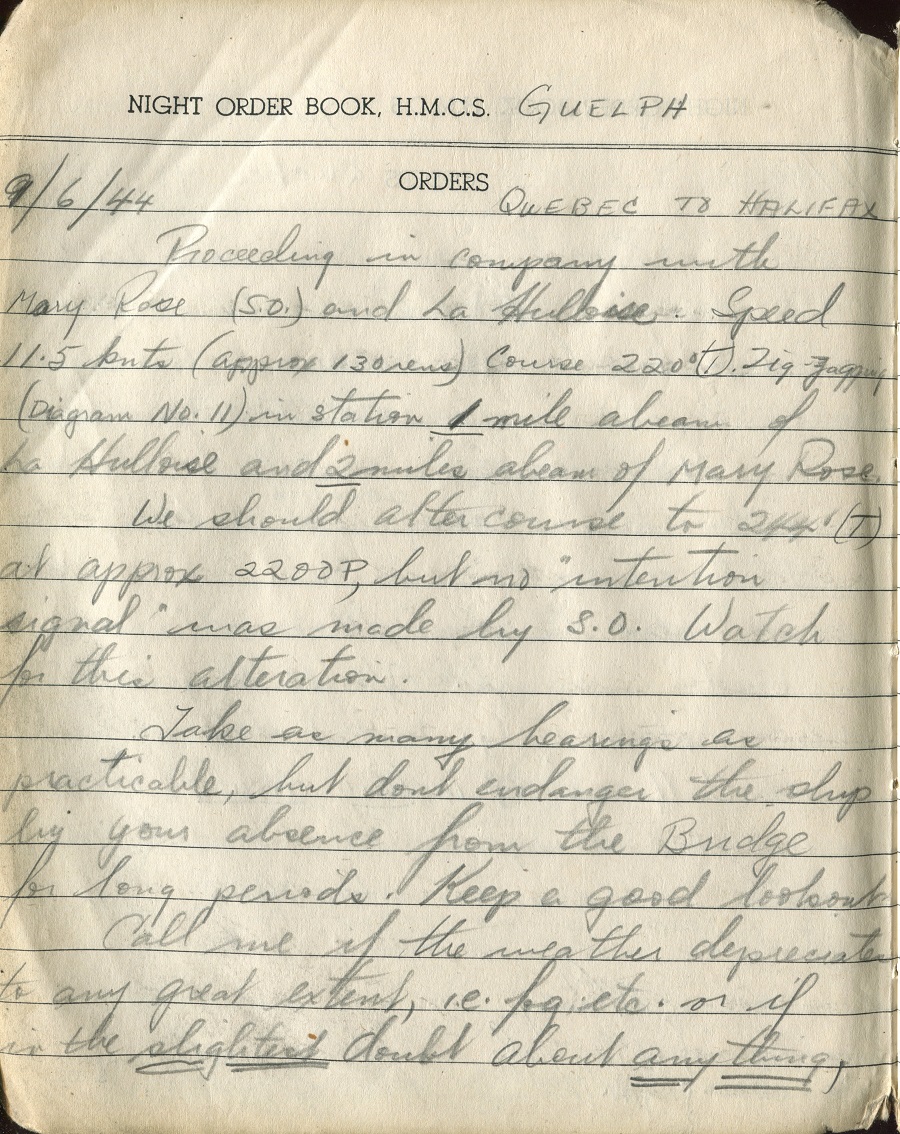 NIGHT ORDER BOOK, H.M.C.S. GUELPH
ORDERS
9/6/44 QUEBEC TO HALIFAX
Proceeding in company with
Mary Rose (S.O.) and La Hulloise. Speed
11.5 knts (approx 130 revs) Course 220°(T). Zig-Zagging
(Diagram No. 11) in station 1 mile abeam of
La Hulloise and 2 miles abeam of Mary Rose.
We should alter course to 244°(T)
at approx 2200P, but no "intention
signal" was made by S.O. Watch
for this alteration.
Take as many bearings as
practicable, but dont endanger the ship
by your absence from the Bridge
for long periods. Keep a good lookout
Call me if the weather depreciates
to any great extent, i.e. fog etc. or if
in the slightest doubt about any thing,